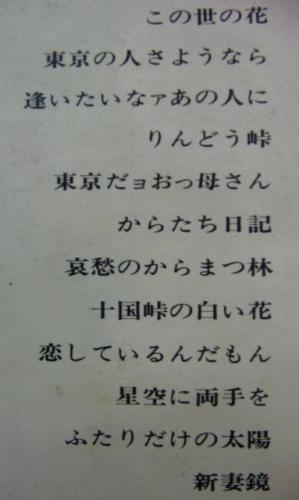 この世の花
東京の人さようなら
逢いたいなァあの人に
りんどう峠
東京だョおっ母さん
からたち日記
哀愁のからまつ林
十国峠の白い花
恋しているんだもん
星空に両手を
ふたりだけの太陽
新妻鏡